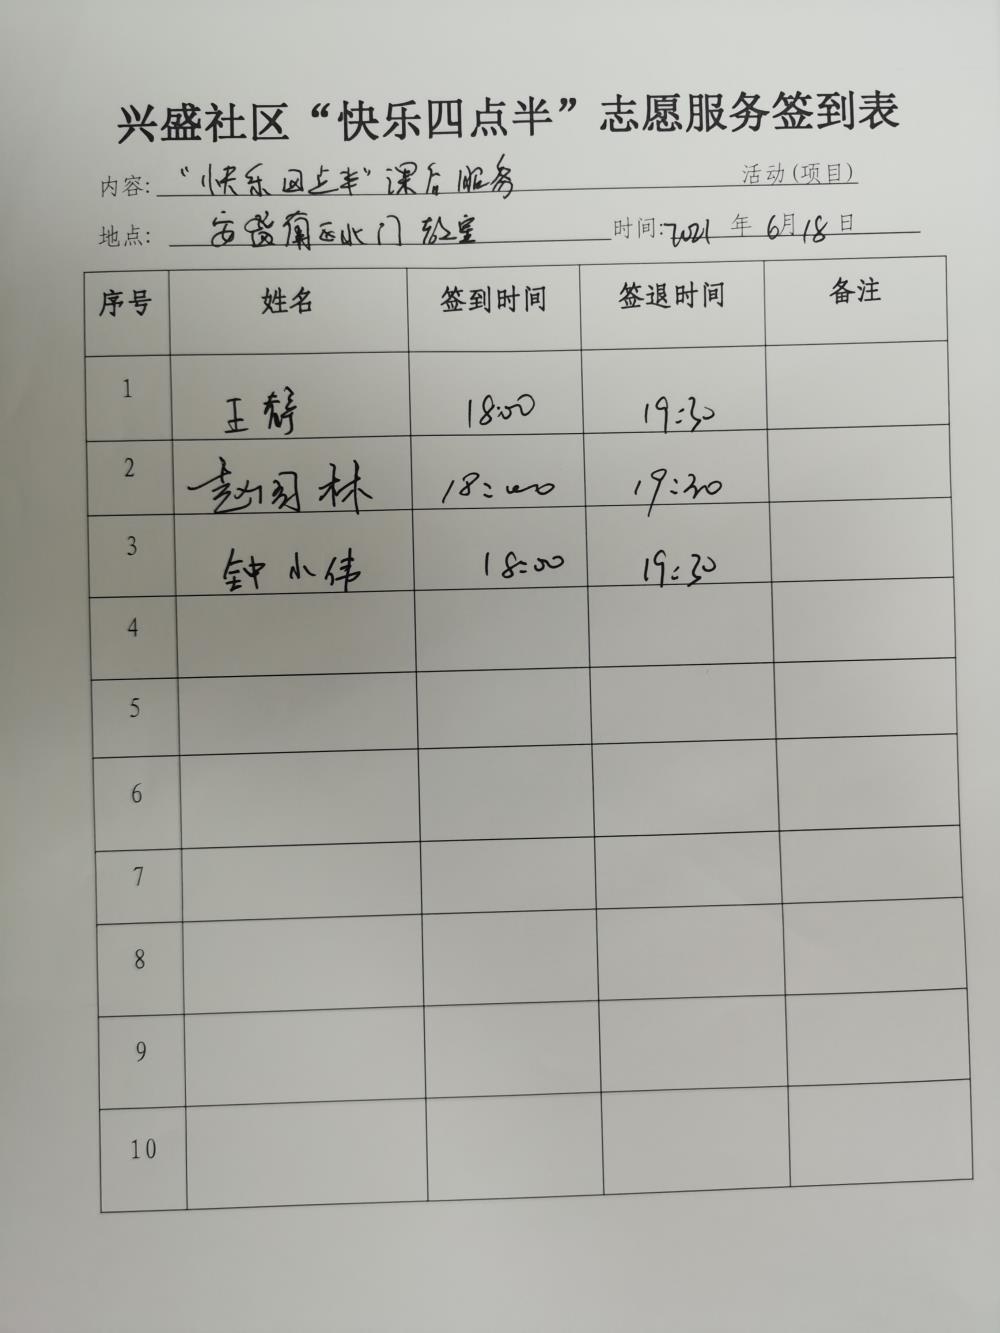 兴盛社区“快乐四点半”志愿服务签到表
内容: “快乐四点半”课后服务 活动(项目)
地点: 北门教室 时间:2021年6月18日
序号 姓名 签到时间 签退时间 备注
1 王静 18:00 19:30
2 林 18:00 19:30
3 钟小伟 18:00 19:30
4
5
6
7
8
9
10